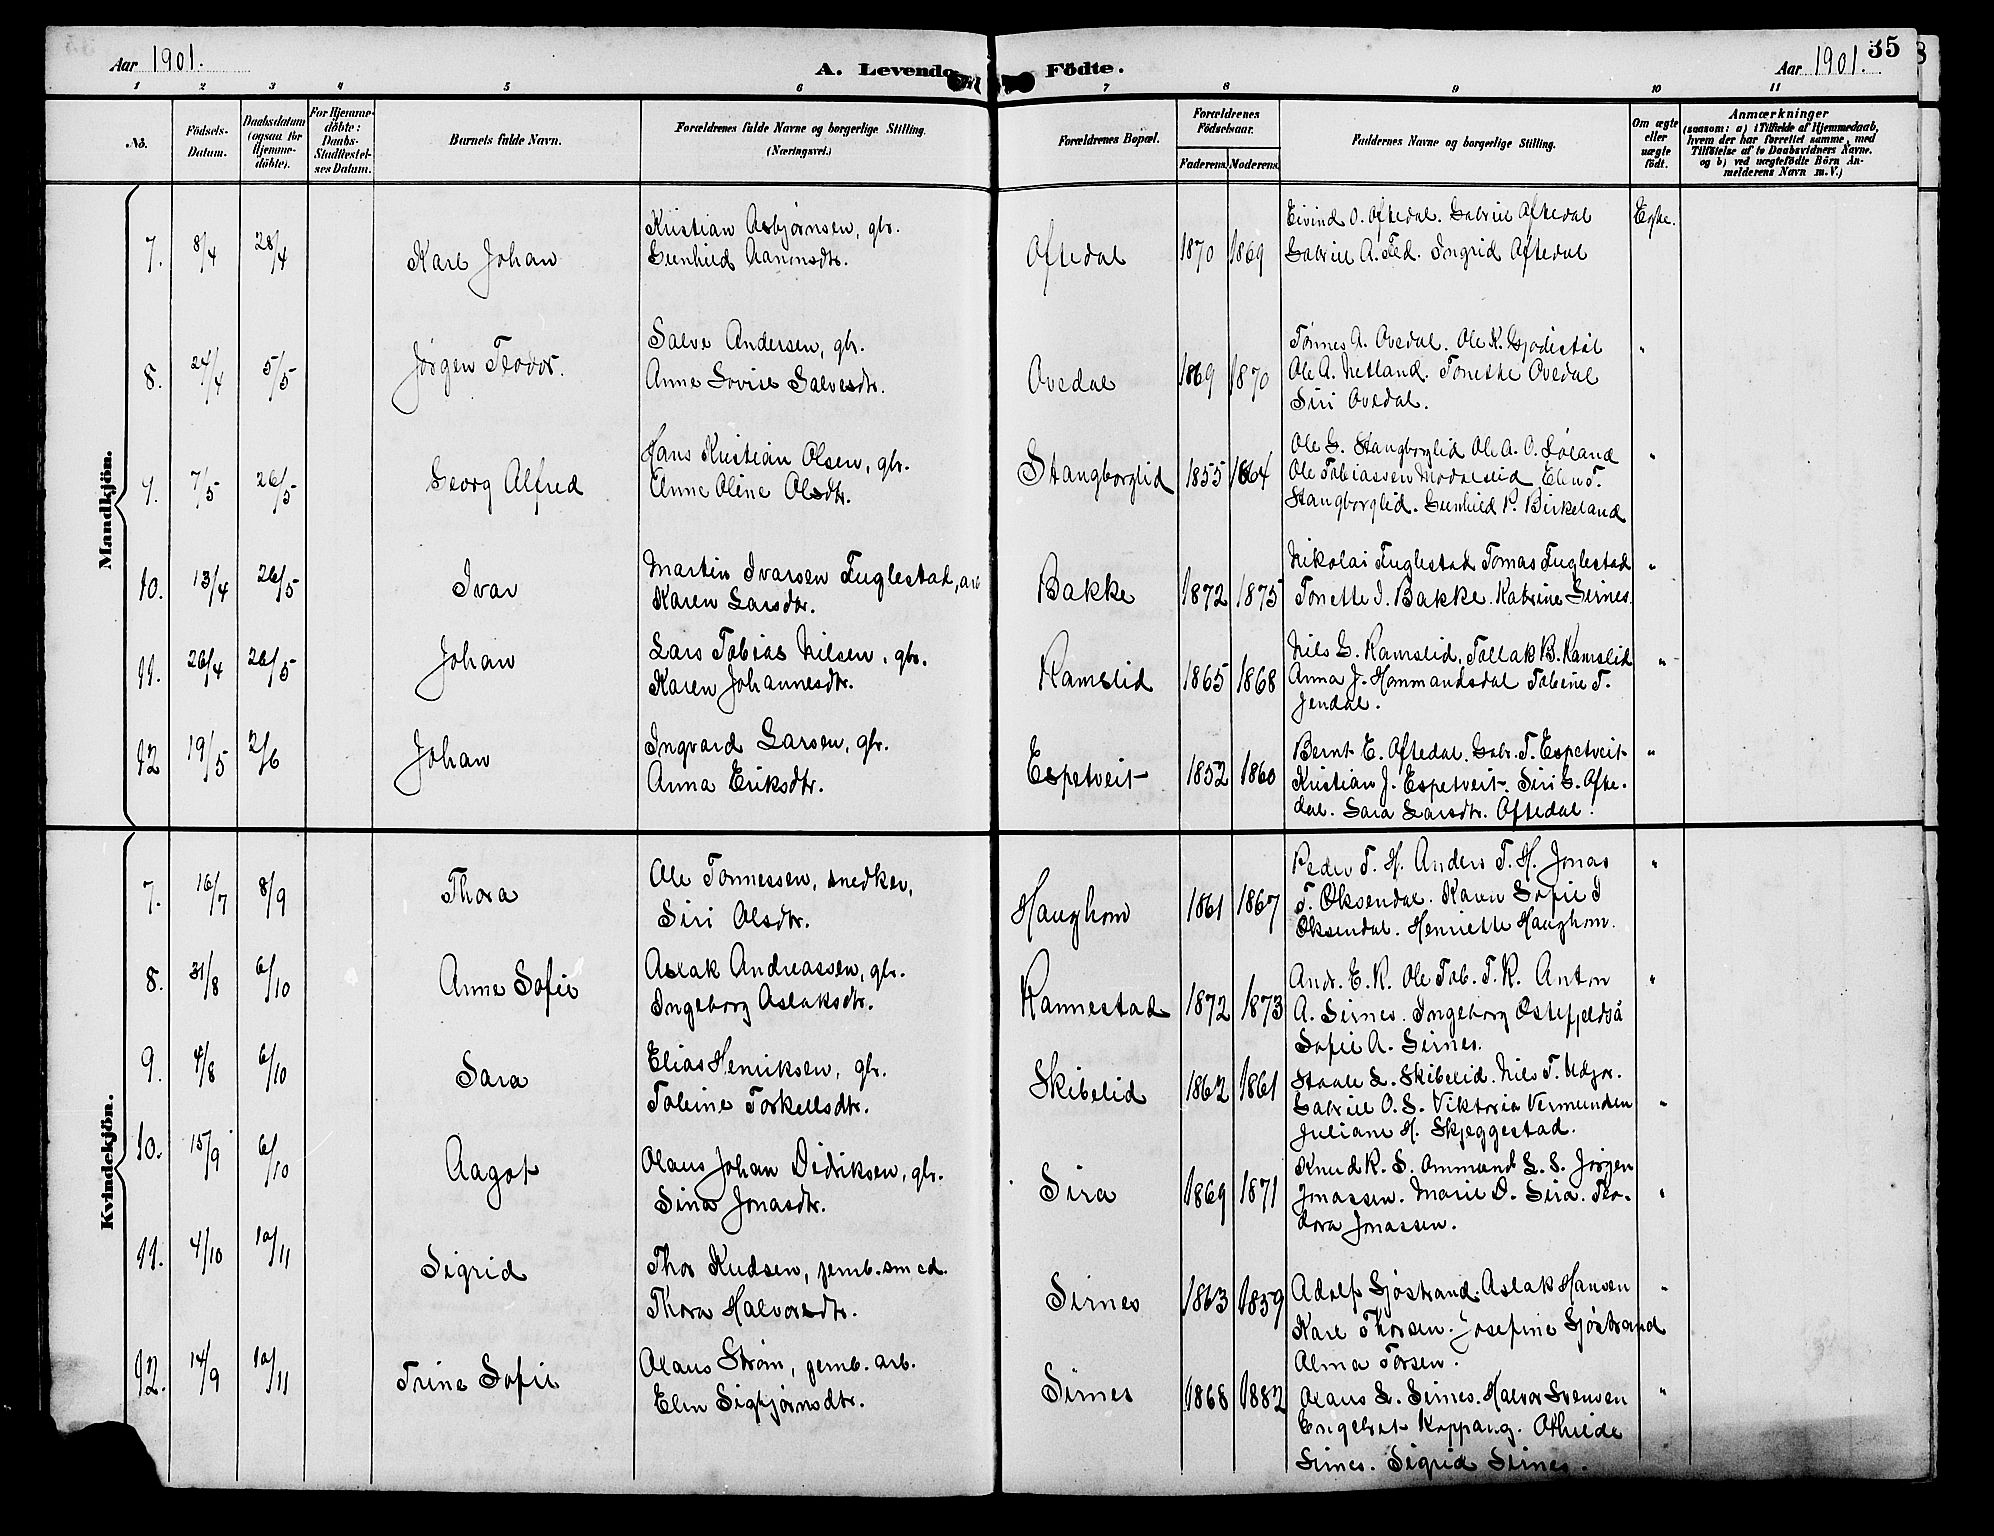 Aar 1901.
A. Levende Födte.
Aar 1901.
35
1 2 3 4 5 6 7 8 9 10 11
No.
Födsels-Datum.
Daabsdatum (ogsaa for Hjemme-döbte).
For Hjemme-döbte: Daabs-Stadfæstel-ses Datum.
Barnets fulde Navn.
Forældrenes fulde Navne og borgerlige Stilling. (Næringsvei.)
Forældrenes Bopæl.
Forældrenes Födselsaar.
Faderens. Moderens.
Faddernes Navne og borgerlige Stilling.
Om ægte eller uægte födt.
Anmærkninger
(saasom: a) i Tilfælde af Hjemmedaab, hvem der har forrettet samme, med Tilföielse af to Daabsvidners Navne, og b) ved uægtefödte Börn An-melderens Navn m.V.)
Mandkjön.
7. 8/4 28/4 Karl Johan
Kristian Asbjørnsen, gbr.
Gunhild Aanensdtr.
Oftedal 1870 1869
Eivind O. Oftedal. Gabriel Oftedal
Gabriel A. Fed. Ingrid Oftedal
Egte.
8. 24/4 5/5 Jørgen Teodor.
Salve Andersen, gbr.
Anne Lovise Salvesdtr.
Ovedal 1869 1870
Tønnes A. Ovedal. Ole K. Gjodestøl
Ole A. Netland. Tonette Ovedal
Siri Ovedal.
"
9. 7/5 26/5 Georg Alfred
Hans Kristian Olsen, gbr.
Anne Oline Olsdtr.
Stangborglid 1855 1864
Ole G. Stangborglid Ole A. O. Løland
Ole Tobiassen Modalslid Elen T.
Stangborglid. Gunhild P. Birkeland
"
10. 13/4 26/5 Ivar
Martin Ivarsen Fuglestad, arb
Karen Larsdtr.
Bakke 1872 1875
Nikolai Fuglestad Tomas Fuglestad
Tonette I. Bakke. Katrine Sirnes.
"
11. 26/4 26/5 Johan
Lars Tobias Nilsen, gbr.
Karen Johannesdtr.
Ramslid 1865 1868
Nils G. Ramslid, Tollak B. Ramslid
Anna J. Hommandsdal Tobine T.
Jendal.
"
12 19/5 2/6 Johan
Ingvard Larsen, gbr.
Anna Eriksdtr.
Espetveit 1852 1860
Bernt E. Oftedal. Gabr. T. Espetveit
Kristian J. Espetveit. Siri G. Ofte-
dal. Sara Larsdtr. Oftedal.
"
Kvindekjön.
7. 16/7 8/9 Thora
Ole Tønnessen, snedker,
Siri Olsdtr.
Haughom 1861 1867
Peder T. H. Anders T. H. Jonas
T. Øksendal. Karen Sofie I
Øksendal. Henriette Haughom.
"
8. 31/8 6/10 Anne Sofie
Aslak Andreassen, gbr.
Ingeborg Aslaksdtr.
Rannestad 1872 1873
Andr. E. R. Ole Tob. T. R. Anton
A. Sirnes. Ingeborg Østefjeldså
Sofie A. Sirnes.
"
9. 4/8 6/10 Sara
Elias Henriksen, gbr.
Tobine Torkellsdtr.
Skibelid 1862 1861
Staale L. Skibelid. Nils T. Udjor.
Gabriel O. S. Viktoria Vermunden
Juliane H. Skjeggestad.
"
10. 15/9 6/10 Aagot
Olaus Johan Didriksen, gbr.
Sina Jonasdtr.
Sira 1869 1871
Knud R. S. Ommund L. S. Jørgen
Jonassen. Marie D. Sira. Teo-
dora Jonassen.
"
11. 4/10 10/11 Sigrid
Thor Kudsen, jernb. smed.
Thora Halvorsdtr.
Sirnes 1863 1859
Adolf Sjøstrand. Aslak Hansen
Karl Thorsen. Josefine Sjøstrand
Alma Torsen.
"
12. 14/9 10/11 Trine Sofie
Olaus Strøm, jernb. arb.
Elen Sigbjørnsdtr.
Sirnes 1868 1882
Olaus L. Sirnes. Halvor Svensen
Engebret Koppang. Othilde
Sirnes. Sigrid Sirnes.
"